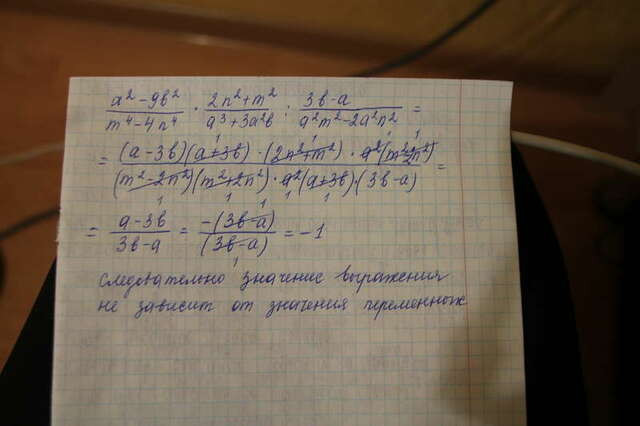 a² - 9b² / m⁴ - 4n⁴ · 2n² + m² / a³ + 3a²b : 3b - a / a²m² - 2a²n² =
= (a - 3b)(a + 3b) · (2n² + m²) · a²(m² - 2n²) / (m² - 2n²)(m² + 2n²) · a²(a + 3b) · (3b - a) =
= a - 3b / 3b - a = -(3b - a) / (3b - a) = -1
Следовательно значение выражения
не зависит от значения переменных